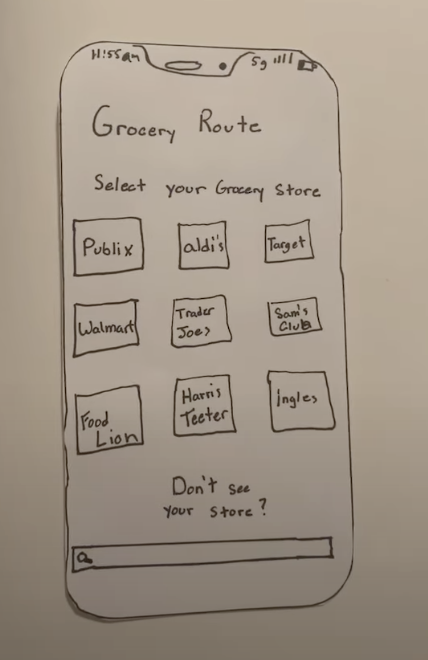 11:55am 5g
Grocery Route
Select your Grocery Store
Publix aldi's Target
Walmart Trader Joes Sam's Club
Food Lion Harris Teeter ingles
Don't see
your store?